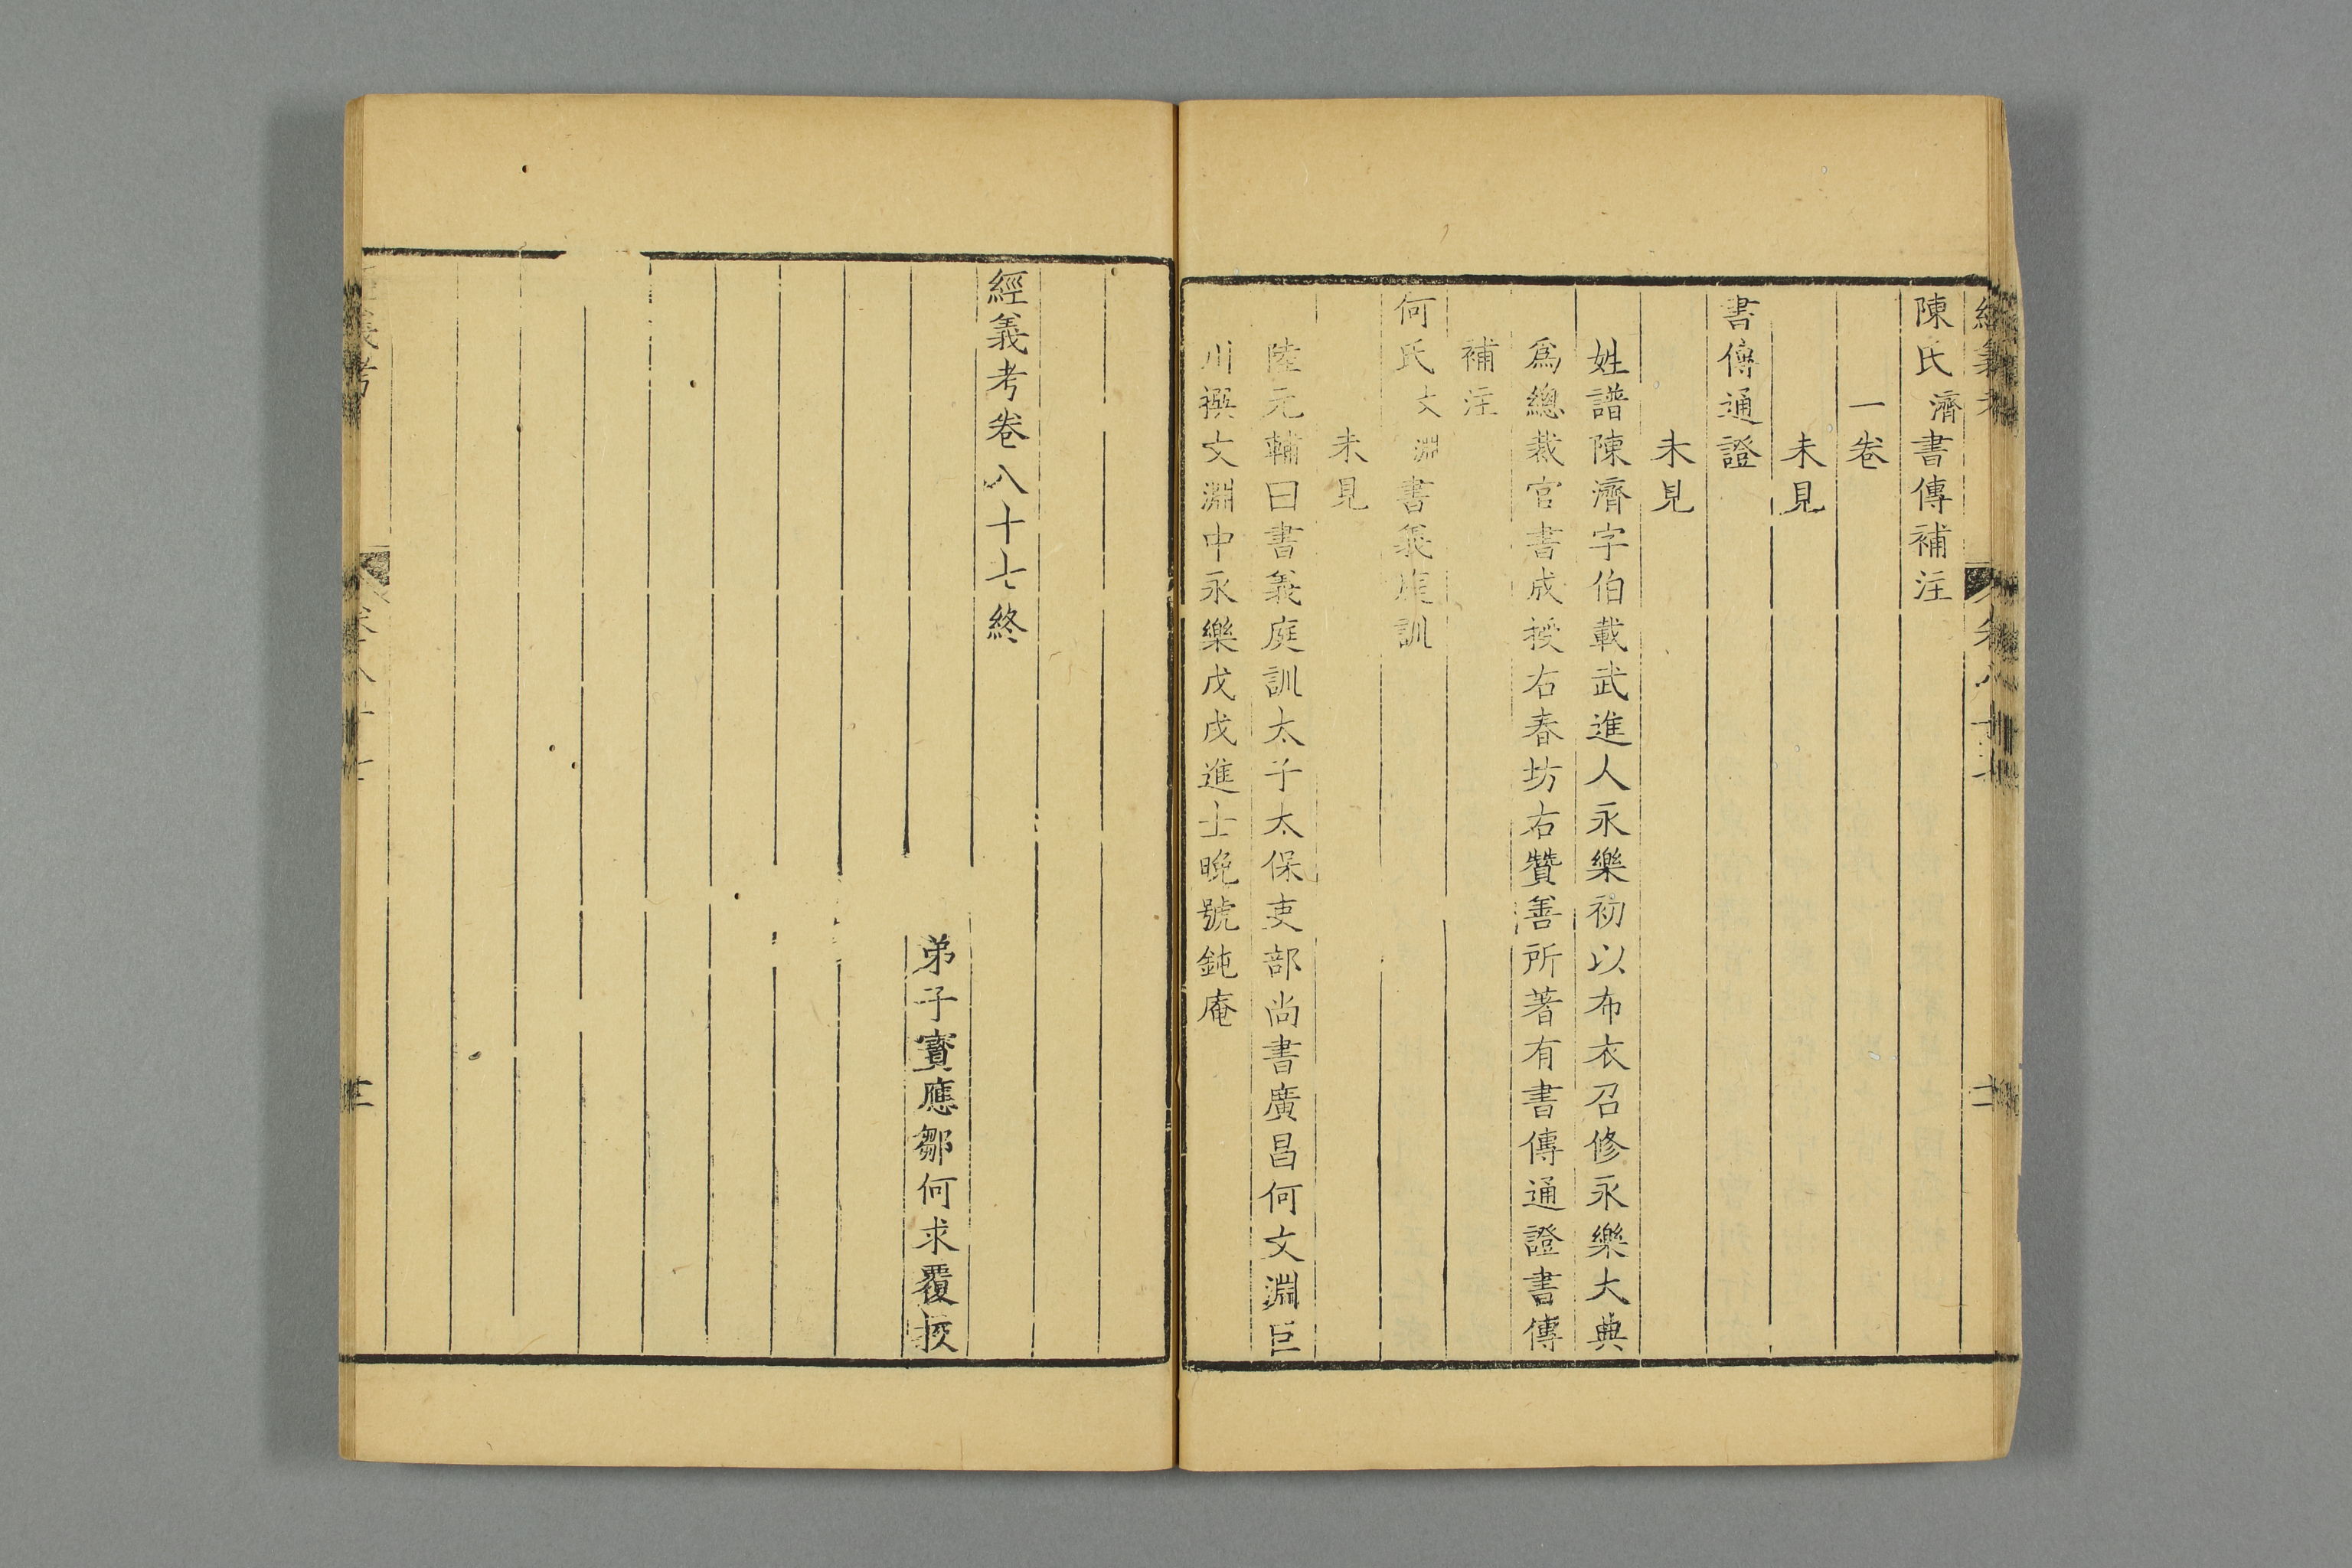 陳氏濟書傳補注
一卷
未見
書傳通證
未見
姓譜陳濟字伯載武進人永樂初以布衣召修永樂大典
爲總裁官書成授右春坊右贊善所著有書傳通證書傳
補注
何氏文淵書義庭訓
未見
陸元輔曰書義庭訓太子太保吏部尚書廣昌何文淵巨
川撰文淵中永樂戊戌進士晚號鈍庵
經義考卷八十七終
弟子寶應鄒何求覆挍